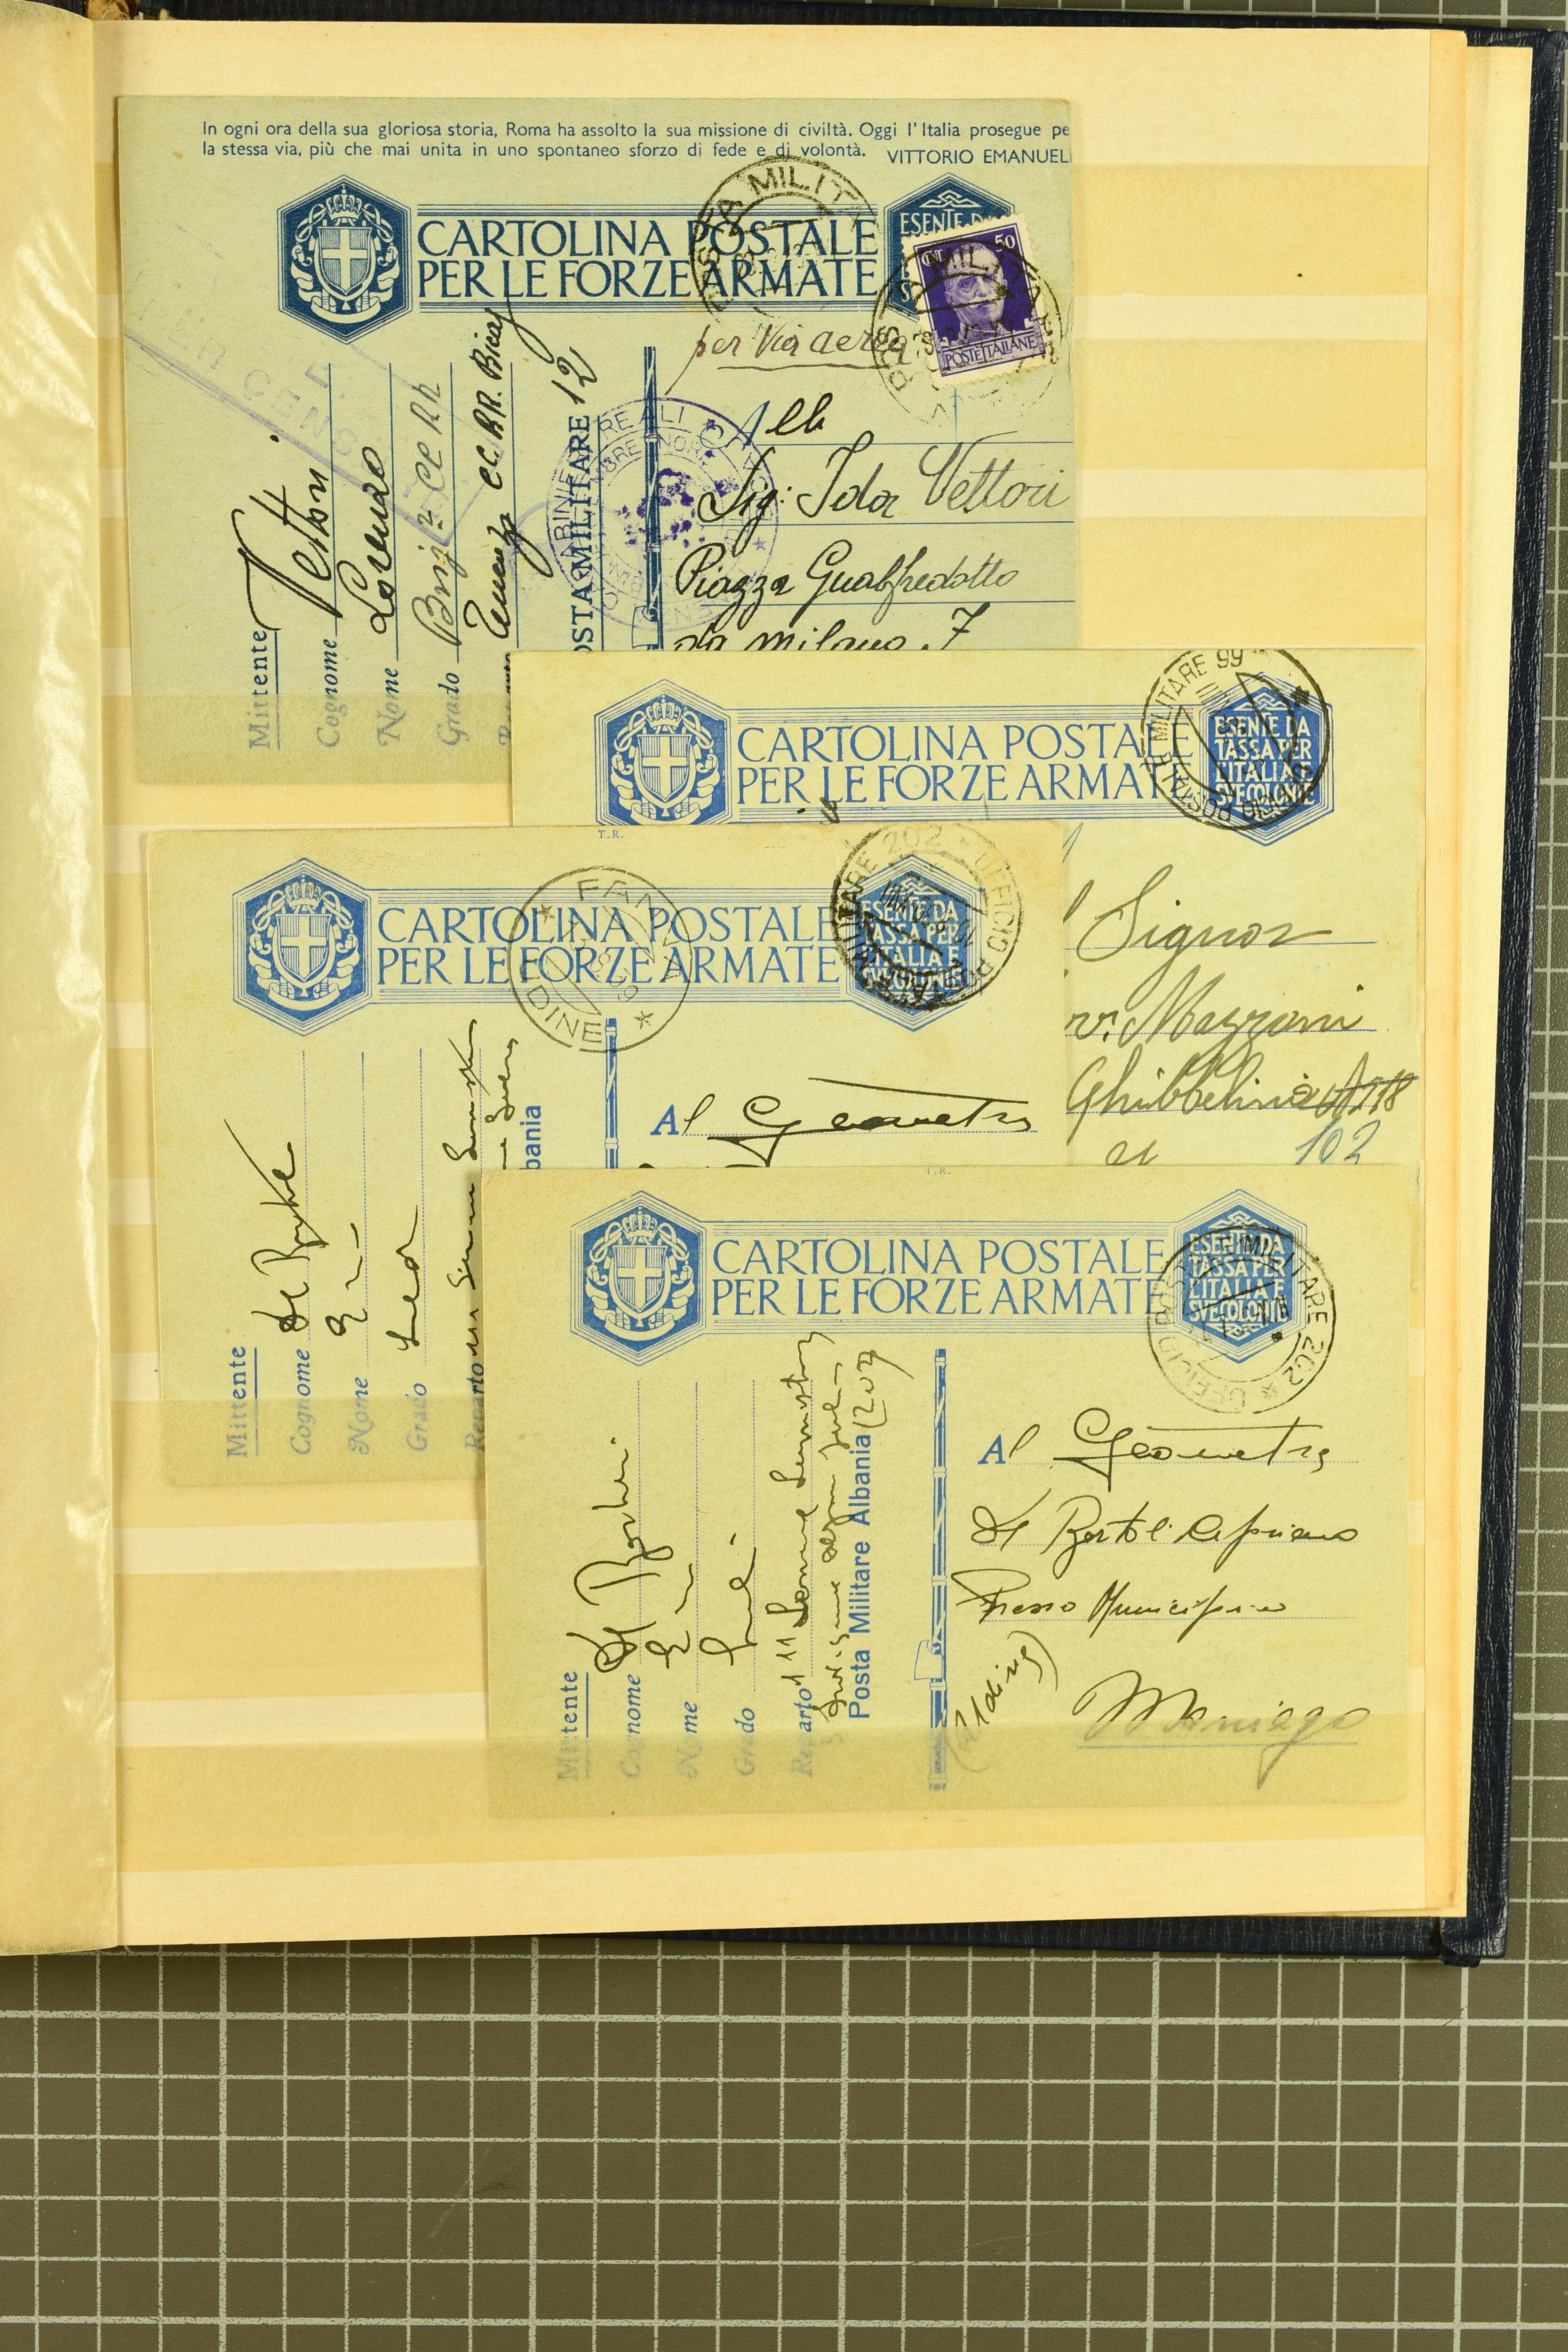 In ogni ora della sua gloriosa storia, Roma ha assolto la sua missione di civiltà. Oggi l'Italia prosegue pe
la stessa via, più che mai unita in uno spontaneo sforzo di fede e di volontà. VITTORIO EMANUEL
CARTOLINA POSTALE
PER LE FORZE ARMATE
ESENTE DA
POSTA MILITA
CT. 50
POSTE ITALIANE
per Via aerea
Mittente
Cognome Vettori
Nome Lorenzo
Grado Brig. CC RR
Tenenza CC.RR.
OSTA MILITARE 12
Alla
Sig: Ida Vettori
Piazza Gualfredotto
da Milano . 7
CARTOLINA POSTALE
PER LE FORZE ARMAT
ESENTE DA
TASSA PER
L'ITALIA E
SVE COLONIE
UFFICIO POSTALE MILITARE 99
T.R.
Signor
v. Mazzoni
Ghibellina 118
102
CARTOLINA POSTALE
PER LE FORZE ARMATE
ESENTE DA
TASSA PER
L'ITALIA E
SVE COLONIE
FANNA
UDINE
MILITARE 202 UFFICIO POSTALE
Mittente
Cognome
Nome
Grado
Reparto
bania
Al Geometra
T.R.
CARTOLINA POSTALE
PER LE FORZE ARMATE
ESENTE DA
TASSA PER
L'ITALIA E
SVE COLONIE
UFFICIO POSTALE MILITARE 202
Mittente
Cognome
Nome
Grado
Reparto
Posta Militare Albania (202)
Al Geometra
De Bortoli Cipriano
Presso Municipio
(Udine)
Maniago